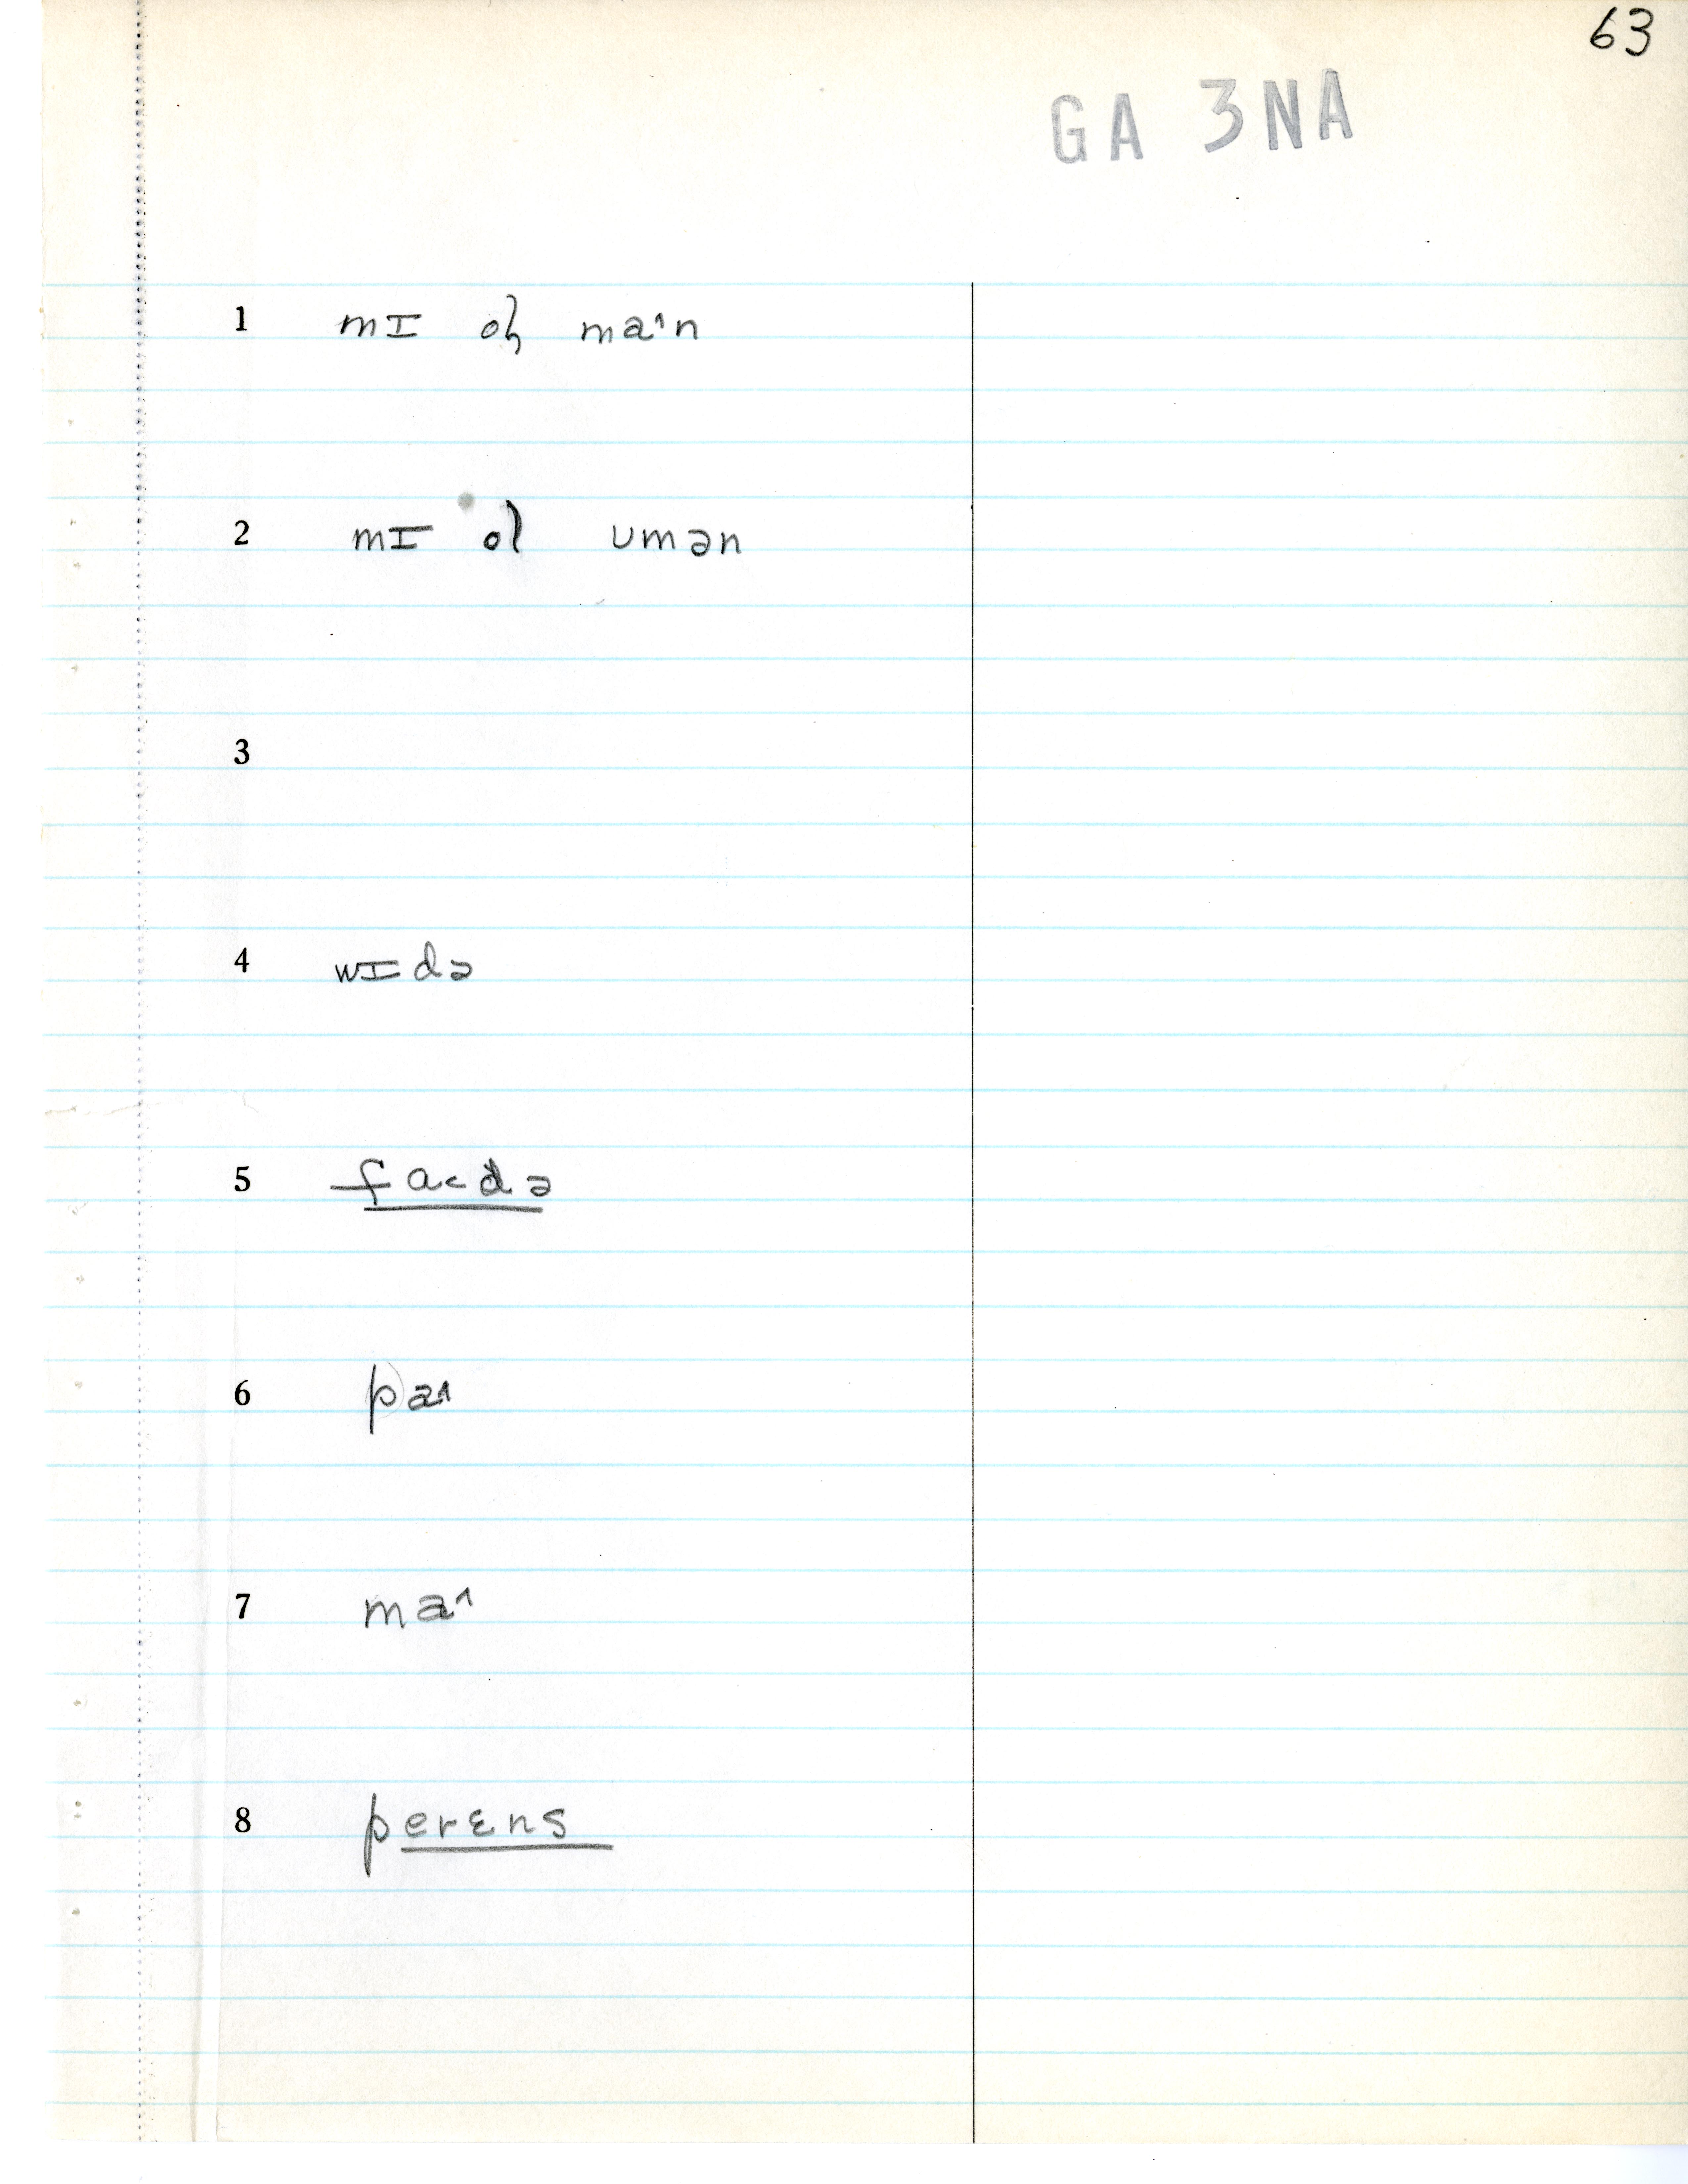 63
GA 3NA
1 mɪ maˑn
2 mɪ ol ʊmən
3
4 wɪdə
5 fa<də
6 pa^
7 ma^
8 perɛns